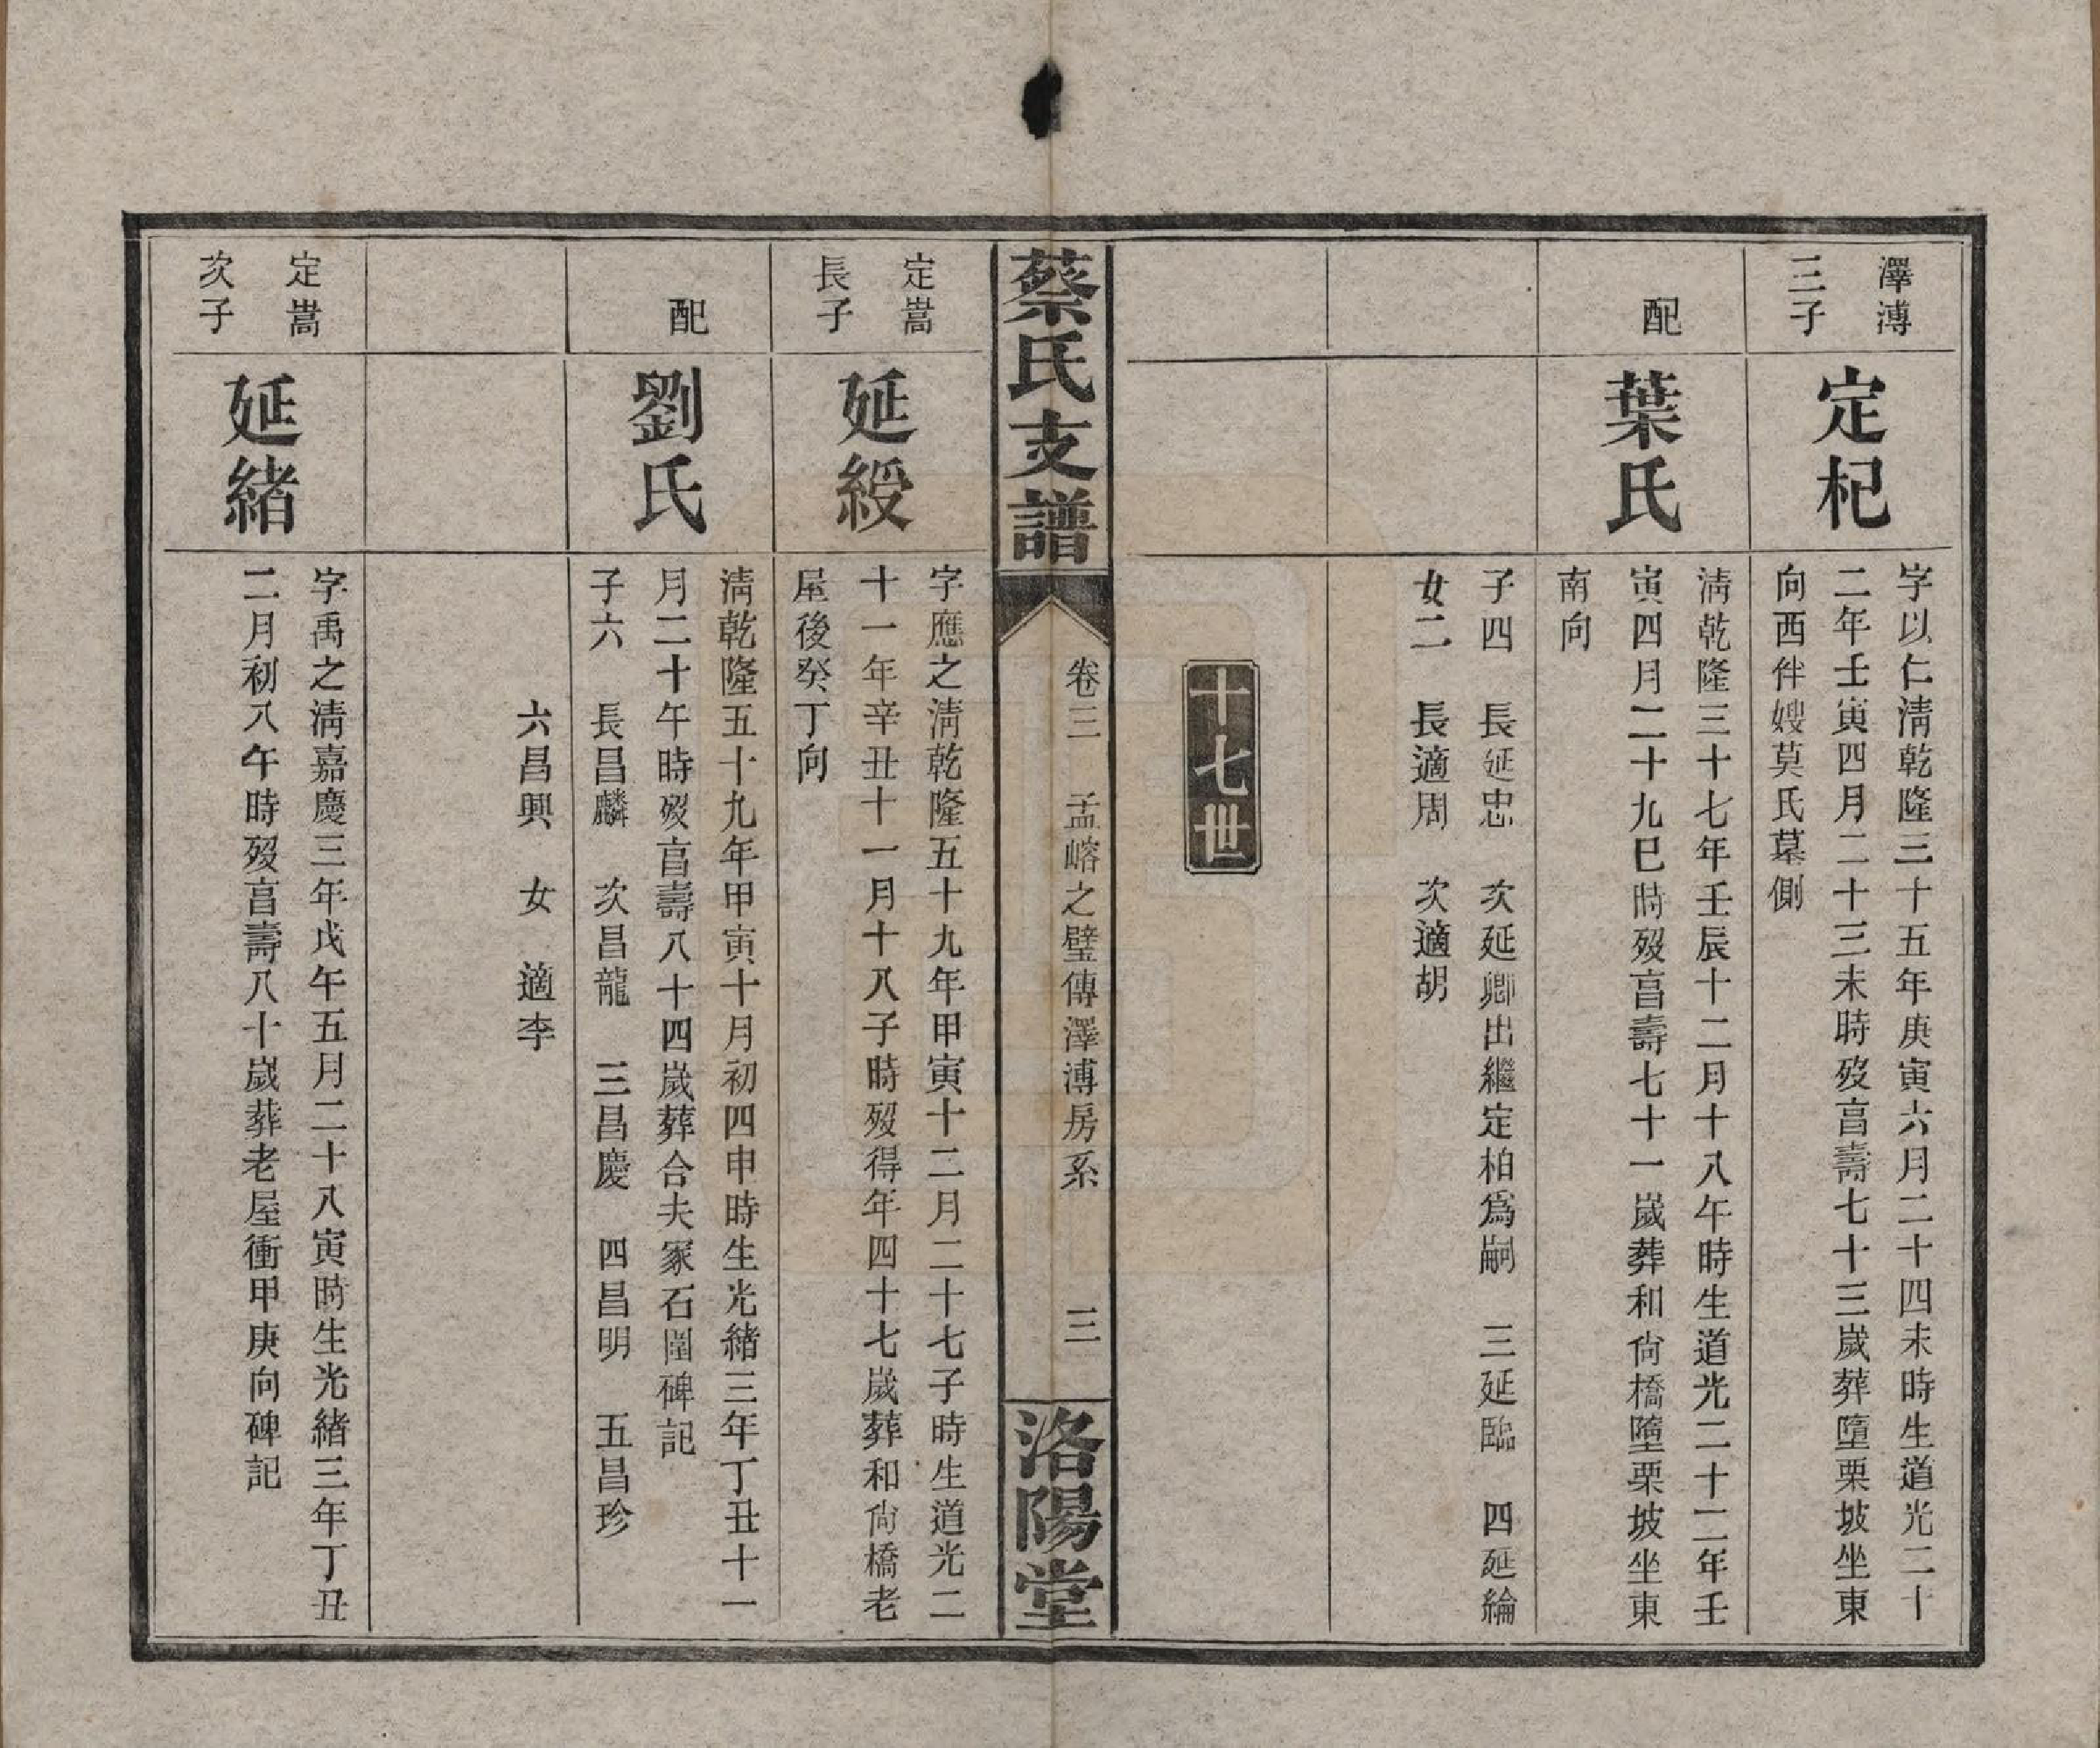 澤溥
三子
定杞
字以仁淸乾隆三十五年庚寅六月二十四未時生道光二十
二年壬寅四月二十三未時歿亯壽七十三歲葬墮栗坡坐東
向西伴嫂莫氏墓側
配
葉氏
淸乾隆三十七年壬辰十二月十八午時生道光二十二年壬
寅四月二十九巳時歿亯壽七十一歲葬和尙橋墮栗坡坐東
南向
子四　長延忠　次延卿出繼定柏爲嗣　三延臨　四延綸
女二　長適周　次適胡
十七世
蔡氏支譜
卷三　孟嵱之璧傳澤溥房系　三
洛陽堂
定嵩
長子
延綬
字應之淸乾隆五十九年甲寅十二月二十七子時生道光二
十一年辛丑十一月十八子時歿得年四十七歲葬和尙橋老
屋後癸丁向
配
劉氏
淸乾隆五十九年甲寅十月初四申時生光緖三年丁丑十一
月二十午時歿亯壽八十四歲葬合夫冢石圍碑記
子六　長昌麟　次昌龍　三昌慶　四昌明　五昌珍
六昌興　女　適李
定嵩
次子
延緖
字禹之淸嘉慶三年戊午五月二十八寅時生光緖三年丁丑
二月初八午時歿亯壽八十歲葬老屋衝甲庚向碑記